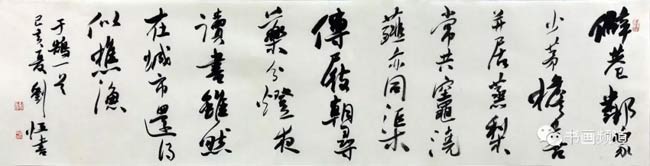 僻巷鄰家
少茅檐喜
并居蒸梨
常共竈澆
薤亦同渠
傳屐朝尋
藥分燈夜
讀書雖然
在城市還得
似樵漁
于鵠一首
己亥夏劉恒書
书画频道